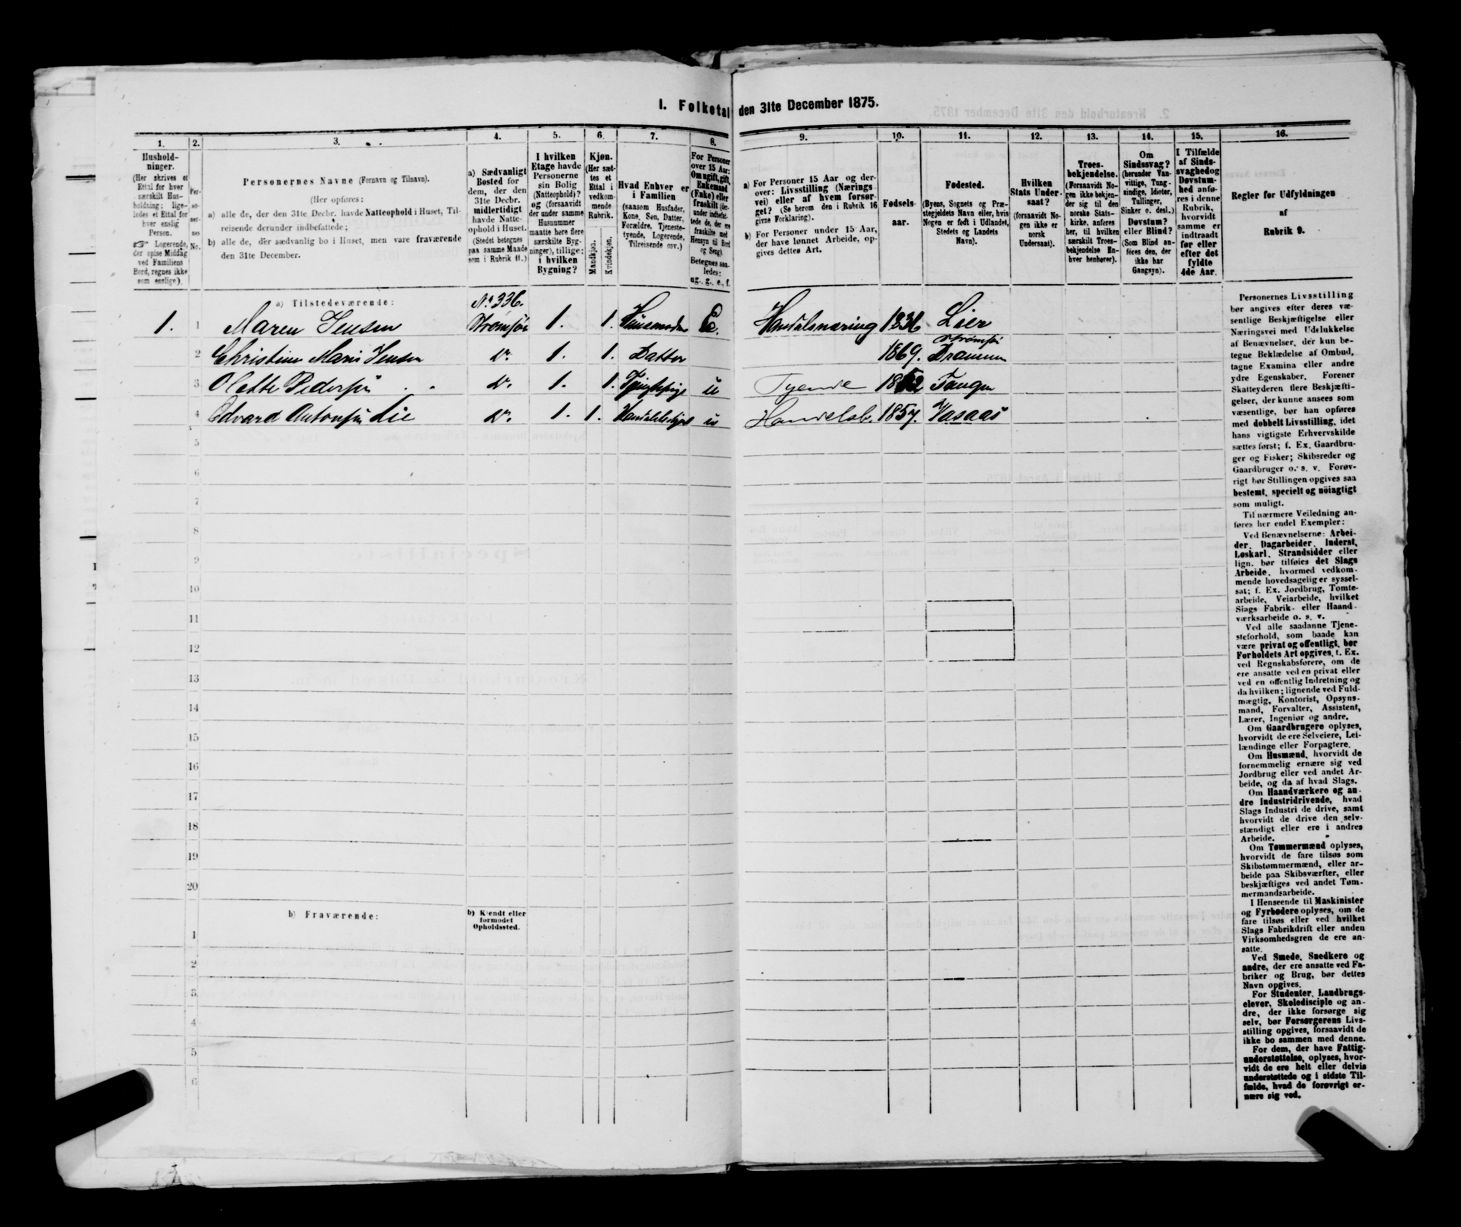 I. Folketal den 31te December 1875.
1.
Hushold-
ninger.
(Her skrives et
Ettal for hver
særskilt Hus-
holdning; lige-
ledes et Ettal for
hver enslig
Person.
☞ Logerende,
der spise Middag
ved Familiens
Bord, regnes ikke
som enslige).
2.
Per-
so-
ner-
nes
No.
3.
Personernes Navne (Fornavn og Tilnavn).
(Her opføres:
a) alle de, der den 31te Decbr. havde Natteophold i Huset, Til-
reisende derunder indbefattede;
b) alle de, der sædvanlig bo i Huset, men vare fraværende
den 31te December.
4.
a) Sædvanligt
Bosted for
dem, der den
31te Decbr.
midlertidigt
havde Natte-
ophold i Huset.
(Stedet betegnes
paa samme Maade
som i Rubrik 11.)
5.
I hvilken
Etage havde
Personerne
sin Bolig
(Natteophold)?
og (forsaavidt
der under samme
Husnummer
maatte høre flere
særskilte Byg-
ninger), tillige:
i hvilken
Bygning?
6.
Kjøn.
(Her sæt-
tes et
Ettal i
vedkom-
mende
Rubrik.
Mandkjøn.
Kvindekjøn.
7.
Hvad Enhver er
i Familien
(saasom Husfader,
Kone, Søn, Datter,
Forældre, Tjeneste-
tyende, Logerende,
Tilreisende osv.)
8.
For Personer
over 15 Aar:
Om ugift, gift,
Enkemand
(Enke) eller
fraskilt
9.
a) For Personer 15 Aar og der-
over: Livsstilling (Nærings
vei) eller af hvem forsør-
get? (Se herom den i Rubrik 16
givne Forklaring).
b) For Personer under 15 Aar,
der have lønnet Arbeide, op-
gives dettes Art.
10.
Fødsels-
aar.
11.
Fødested.
(Byens, Sognets og Præ-
stegjeldets Navn eller, hvis
Nogen er født i Udlandet,
Stedets og Landets
Navn).
12.
Hvilken
Stats Under-
saat?
(forsaavidt No-
gen ikke er
norsk
Undersaat).
13.
Troes-
bekjendelse.
(Forsaavidt No-
gen ikke bekjen-
der sig til den
norske Stats-
kirke, anføres
her, til hvilken
særskilt Troes-
bekjendelse En-
hver henhører).
14.
Om
Sindssvag?
(herunder Van-
vittige, Tung-
sindige, Idioter,
Tullinger,
Sinker o. desl.)
Døvstum?
eller Blind?
(Som Blind an-
føres den, der
ikke har
Gangsyn).
15.
I Tilfælde
af Sinds-
svaghed og
Døvstum-
hed anfø-
res i denne
Rubrik,
hvorvidt
samme er
indtraadt
før eller
efter det
fyldte
4de Aar.
16.
Regler for Udfyldningen
af
Rubrik 9.
a) Tilstedeværende:
1. 1 Maren Jensen No 336. Strømsø 1. 1. Huusmoder E. Handelsnæring 1836 Lier
2 Christine Marie Jensen do. 1. 1. Datter 1869. Strømsø Drammen
3 Olette Pedersen do. 1. 1. Tjenestepige u Tyende 18 2 Tangen
4 Edvard Antonsen Lie do. 1. 1. Handelsbetjent u Handelsb. 1857. Vasaas
5
6
7
8
9
10
11
12
13
14
15
16
17
18
19
20
b) Fraværende:
b) Kjendt eller
formodet
Opholdssted.
1
2
3
4
5
6
Personernes Livsstilling
bør angives efter deres væ-
sentlige Beskjæftigelse eller
Næringsvei med Udelukkelse
af Benævnelser, der kun be-
tegne Beklædelse af Ombud,
tagne Examina eller andre
ydre Egenskaber. Forener
Skatteyderen flere Beskjæfti-
gelser, der kunne ansees som
væsentlige, bør han opføres
med dobbelt Livsstilling, idet
hans vigtigste Erhvervskilde
sættes først; f. Ex. Gaardbru-
ger og Fisker; Skibsreder og
Gaardbruger o. s. v. Forøv-
rigt bør Stillingen opgives saa
bestemt, specielt og nöiagtigt
som muligt.
Til nærmere Veiledning an-
føres her endel Exempler:
Ved Benævnelserne: Arbei-
der, Dagarbeider, Inderst,
Løskarl, Strandsidder eller
lign. bør tilføies det Slags
Arbeide, hvormed vedkom-
mende hovedsagelig er syssel-
sat; f. Ex. Jordbrug, Tomte-
arbeide, Veiarbeide, hvilket
Slags Fabrik- eller Haand-
værksarbeide o. s. v.
Ved alle saadanne Tjene-
steforhold, som baade kan
være privat og offentligt, bør
Forholdets Art opgives, f. Ex.
ved Regnskabsførere, om de
ere ansatte ved en privat eller
ved en offentlig Indretning og
da hvilken; lignende ved Fuld-
mægtig, Kontorist, Opsyns-
mand, Forvalter, Assistent,
Lærer, Ingeniør og andre.
Om Gaardbrugere oplyses,
hvorvidt de ere Selveiere, Lei-
lændinge eller Forpagtere.
Om Husmænd, hvorvidt de
fornemmelig ernære sig ved
Jordbrug eller ved andet Ar-
beide, og da af hvad Slags.
Om Haandværkere og an-
dre Industridrivende, hvad
Slags Industri de drive, samt
hvorvidt de drive den selv-
stændigt eller ere i andres
Arbeide.
Om Tømmermænd oplyses,
hvorvidt de fare tilsøs som
Skibstømmermænd, eller ar-
beide paa Skibsværfter, eller
beskjæftiges ved andet Tøm-
mermandsarbeide.
I Henseende til Maskinister
og Fyrbødere oplyses, om de
fare tilsøs eller ved hvilket
Slags Fabrikdrift eller anden
Virksomhedsgren de ere an-
satte.
Ved Smede, Snedkere og
andre, der ere ansatte ved Fa-
briker og Brug, bør dettes
Navn opgives.
For Studenter, Landbrugs-
elever, Skoledisciple og an-
dre, der ikke forsørge sig
selv, bør Forsørgerens Livs-
stilling opgives, forsaavidt de
ikke bo sammen med denne.
For dem, der have Fattig-
understøttelse, oplyses, hvor-
vidt de ere helt eller delvis
understøttede og i sidste Til-
fælde, hvad de forøvrigt er-
nære sig ved.